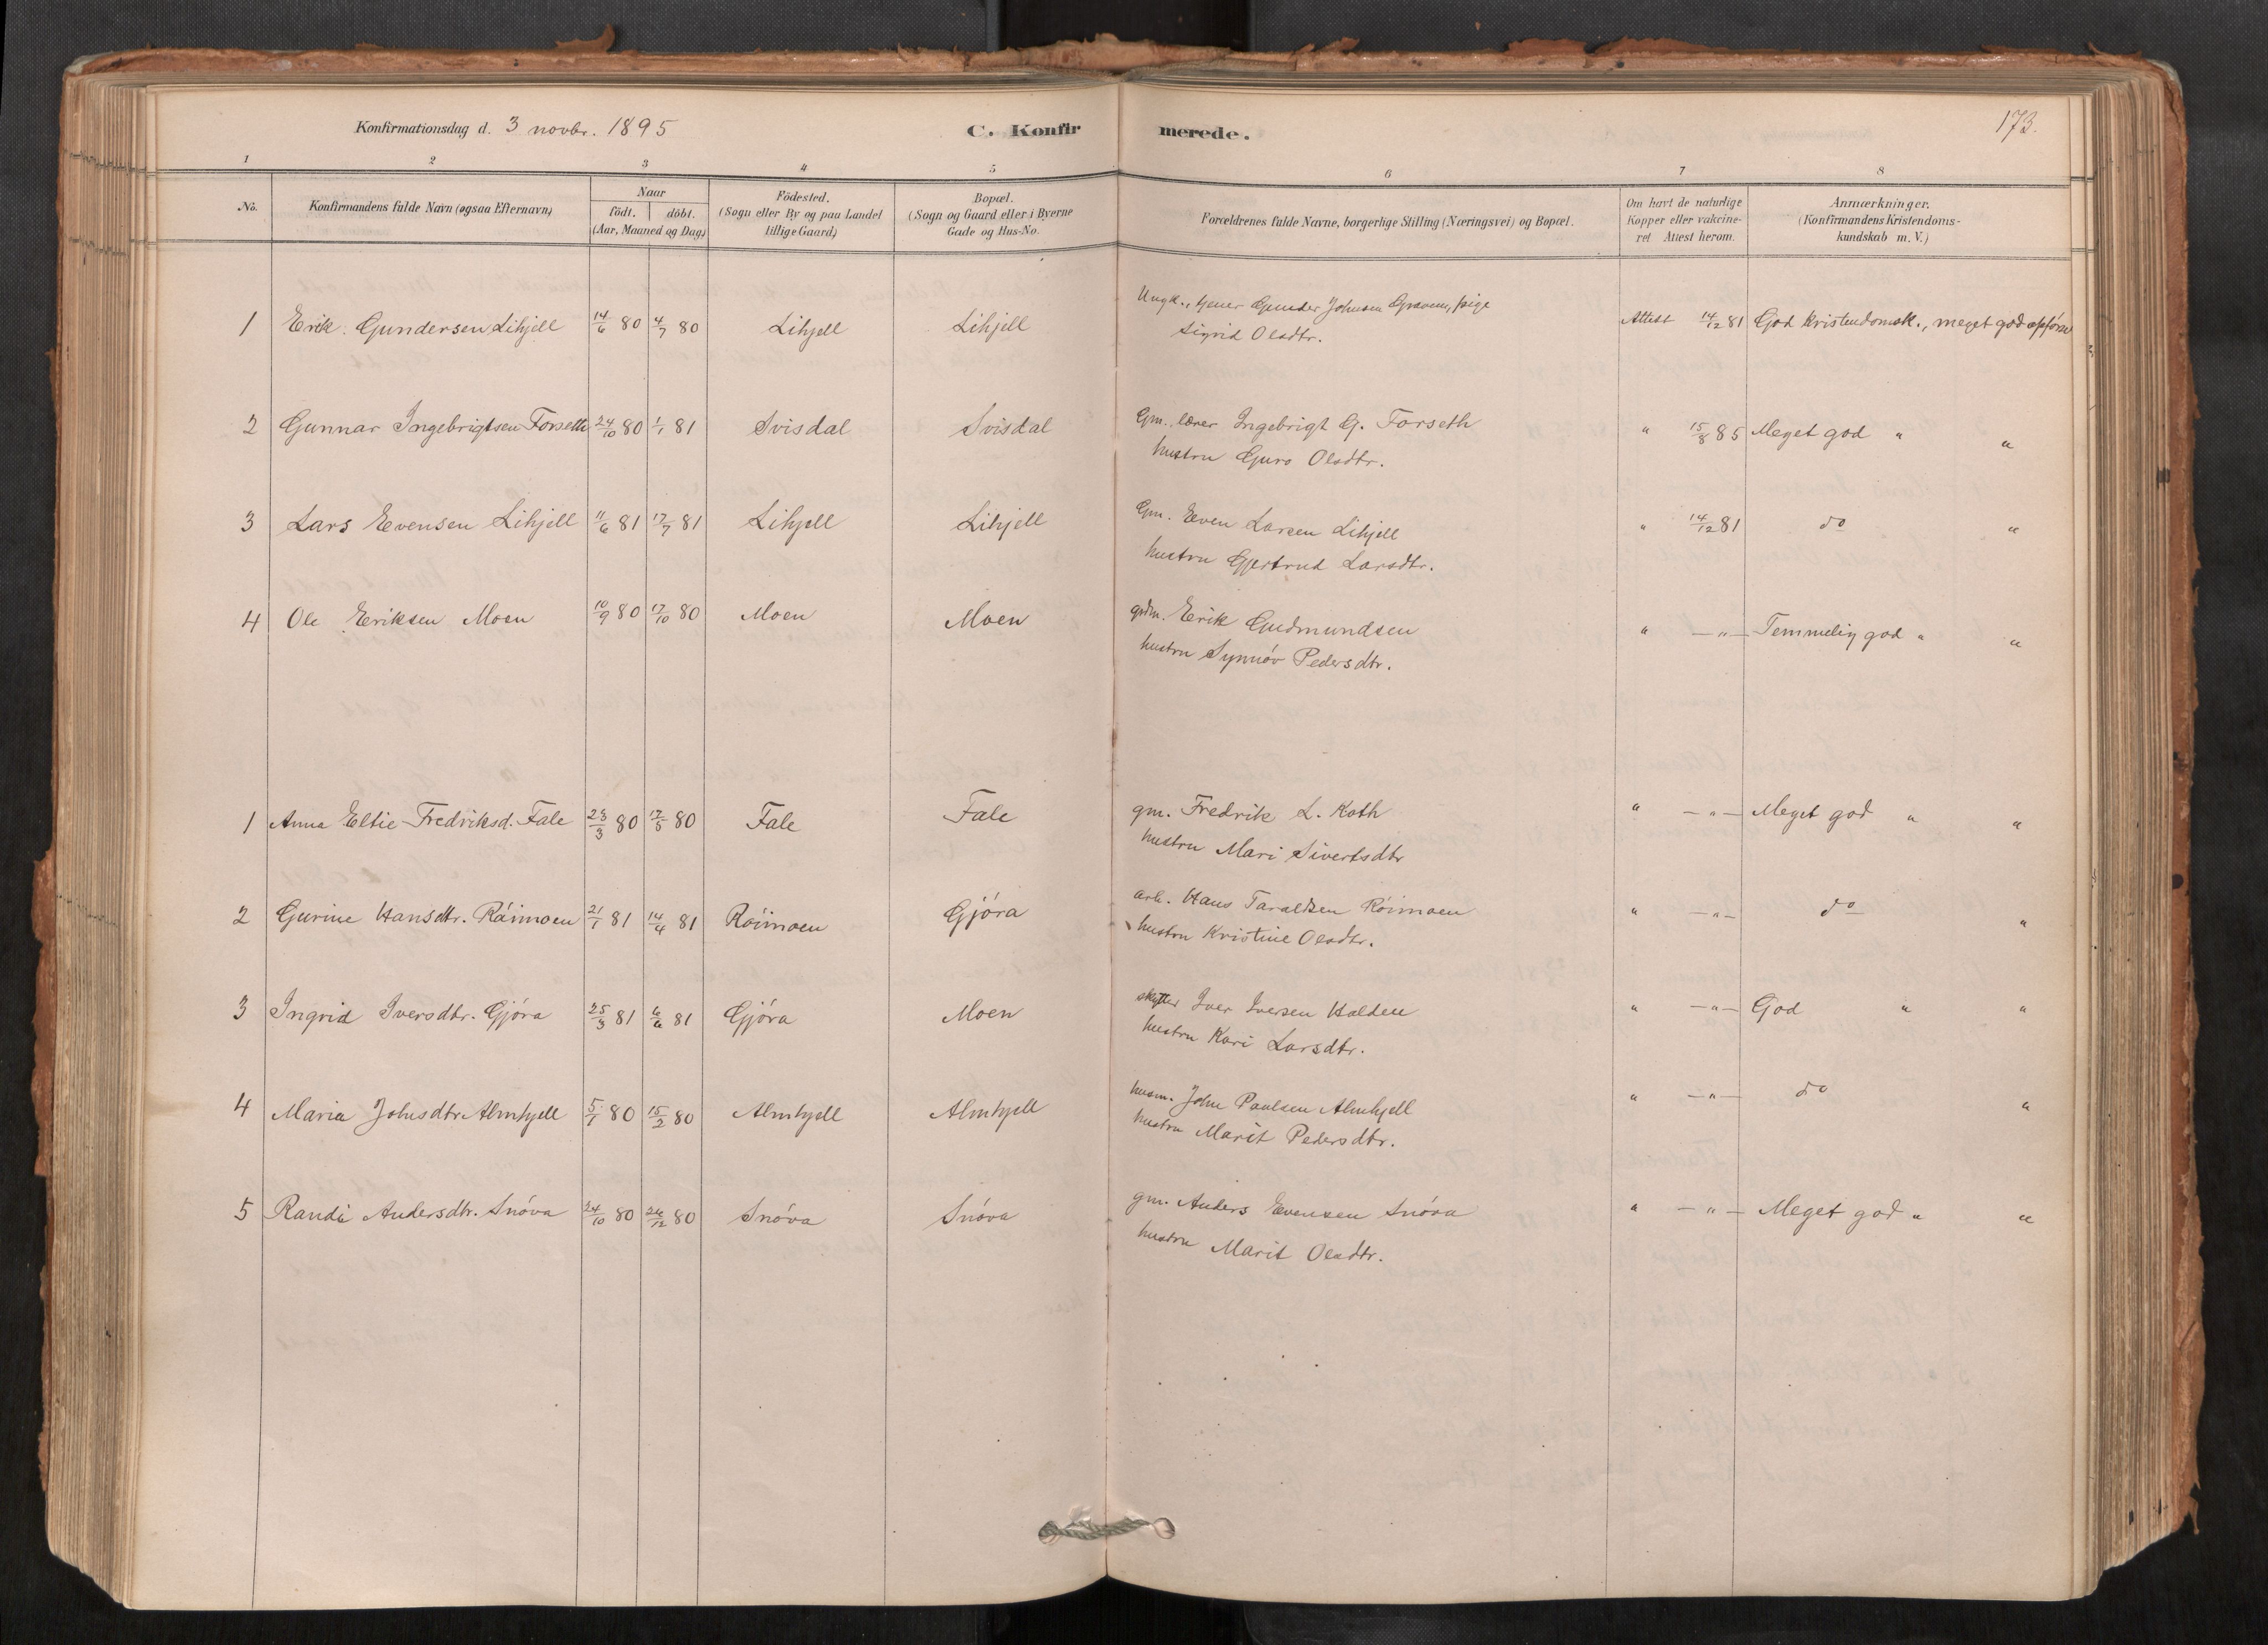 Konfirmationsdag d. 3 novbr. 1895
C. Konfirmerede.
173.
1 2 3 4 5 6 7 8
No.
Konfirmandens fulde Navn (ogsaa Efternavn)
Naar
födt. döbt.
(Aar, Maaned og Dag)
Födested.
(Sogn eller By og paa Landet
tillige Gaard)
Bopæl.
(Sogn og Gaard eller i Byerne
Gade og Hus-No.
Forældrenes fulde Navne, borgerlige Stilling (Næringsvei) og Bopæl.
Om havt de naturlige
Kopper eller vakcine-
ret Attest herom.
Anmærkninger.
(Konfirmandens Kristendoms-
kundskab m. V.)
1 Erik Gundersen Lihjell 14/6 80 4/7 80 Lihjell Lihjell Ungk., tjener Gunder Johnsen Gravem, pige Attest 14/12 81 God Kristendomsk., meget god opförsel
Sigrid Olsdtr.
2 Gunnar Ingebrigtsen Forseth 24/10 80 1/1 81 Svisdal Svisdal Gm., lærer Ingebrigt G. Forseth " 15/8 85 Meget god " "
hustru Guro Olsdtr.
3 Lars Evensen Lihjell 11/6 81 17/7 81 Lihjell Lihjell Gm. Even Larsen Lihjell " 14/12 81 do "
hustru Gjertrud Larsdtr.
4 Ole Eriksen Moen 10/9 80 17/10 80 Moen Moen grdm. Erik Gudmundsen " — " — Temmelig god " "
hustru Synnöv Pedersdtr.
1 Anna Eltie Fredriksd. Fale 23/3 80 17/5 80 Fale Fale gm. Fredrik L. Koth " — " — Meget god " "
hustru Mari Sivertsdtr
2 Gurine Hansdtr. Röimoen 21/1 81 14/4 81 Röimoen Gjöra arb. Hans Taraldsen Röimoen " — " — do "
hustru Kristine Olsdtr.
3 Ingrid Iversdtr. Gjöra 25/3 81 6/6 81 Gjöra Moen skytter Iver Iversen Halden " — " — God " "
hustru Kari Larsdtr.
4 Maria Johnsdtr. Almhjell 5/1 80 15/2 80 Almhjell Almhjell husm. John Paulsen Almhjell " — " — do "
hustru Marit Pedersdtr.
5 Randi Andersdtr. Snöva 24/10 80 26/12 80 Snöva Snöva gm. Anders Evensen Snöva " — " — Meget god " "
hustru Marit Olsdtr.